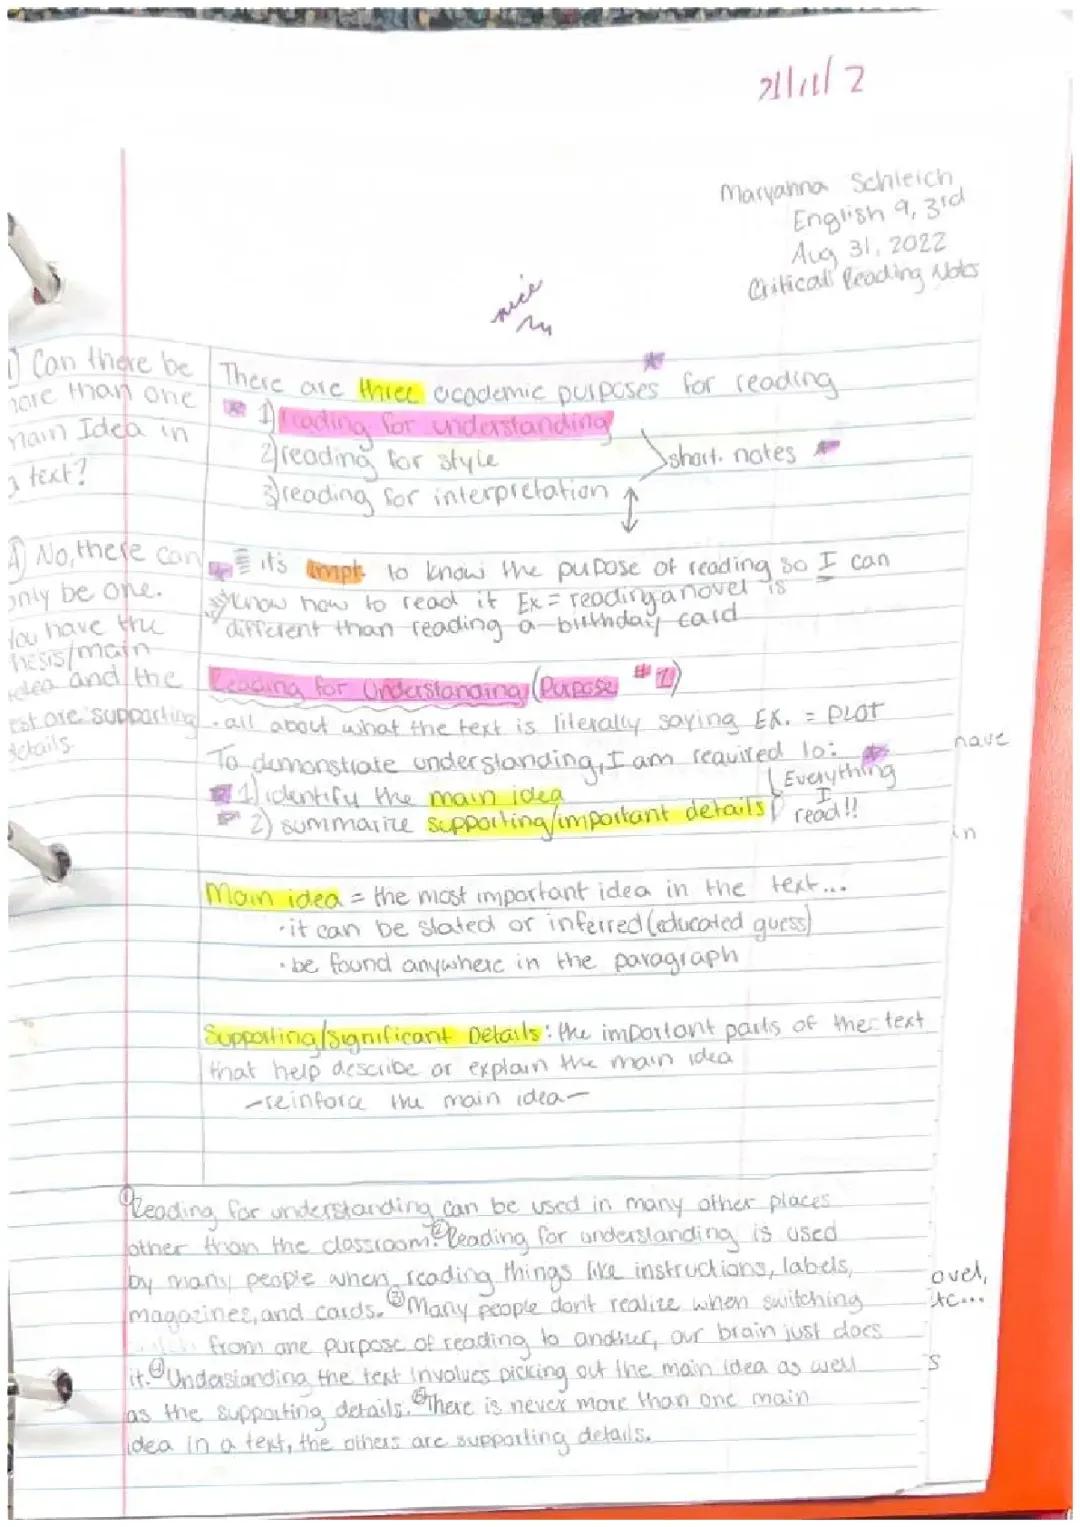 Maryanna Schleich
English 9, 3rd
Aug 31, 2022
Critical Reading Notes
nice
Can there be
more than one
main Idea in
a text?
There are three academic purposes for reading
1) reading for understanding
2) reading for style
3) reading for interpretation
short notes
A) No, there can
only be one.
You have the
thesis/main
idea and the
rest are supporting
details
it's impt to know the pupose of reading so I can
know how to read it Ex = reading a novel is
different than reading a birthday card
Reading for Understanding (Purpose #1)
• all about what the text is literally saying Ex. = PLOT
To demonstrate understanding, I am required to:
1) identify the main idea
2) summarize supporting/important details
Everything
I
read!!
have
in
Main idea = the most important idea in the text...
• it can be stated or inferred (educated guess)
• be found anywhere in the paragraph
Supporting/Significant Details: the important parts of the text
that help describe or explain the main idea
- reinforce the main idea -
① Reading for understanding can be used in many other places
other than the classroom. ② Reading for understanding is used
by many people when reading things like instructions, labels,
magazines, and cards. ③ Many people dont realize when switching
from one purpose of reading to another, our brain just does
it. ④ Understanding the text involves picking out the main idea as well
as the supporting details. ⑤ There is never more than one main
idea in a text, the others are supporting details.
ovel,
etc...
s